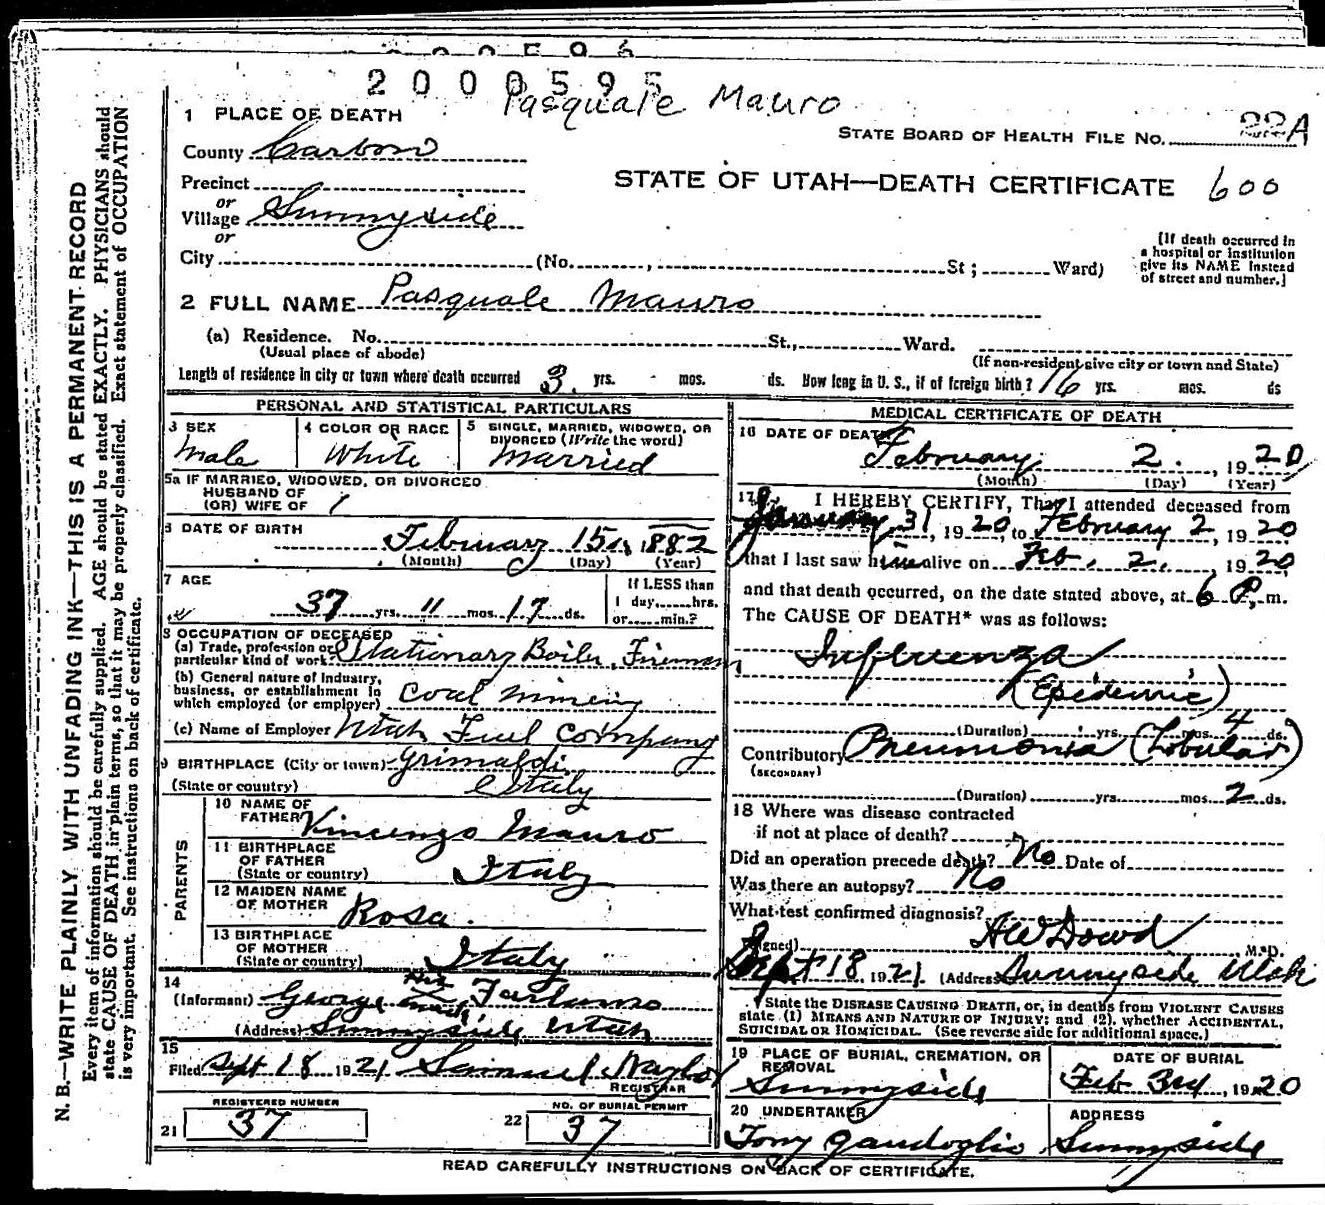 2000595
Pasquale Mauro
1 PLACE OF DEATH
STATE BOARD OF HEALTH FILE NO. 22A
County Carbon
STATE OF UTAH—DEATH CERTIFICATE 600
Precinct
or
Village Sunnyside
or
City (No. , St; Ward)
[If death occurred in
a hospital or institution
give its NAME instead
of street and number.]
2 FULL NAME Pasquale Mauro
(a) Residence. No. St., Ward.
(Usual place of abode)
(If non-resident give city or town and State)
Length of residence in city or town where death occurred 3 yrs. mos. ds. How long in U. S., if of foreign birth? 16 yrs. mos. ds
PERSONAL AND STATISTICAL PARTICULARS
3 SEX
Male
4 COLOR OR RACE
White
5 SINGLE, MARRIED, WIDOWED, OR
DIVORCED (Write the word)
Married
5a IF MARRIED, WIDOWED, OR DIVORCED
HUSBAND OF
(OR) WIFE OF
6 DATE OF BIRTH
February 15 1882
(Month) (Day) (Year)
7 AGE
37 yrs. 11 mos. 17 ds.
If LESS than
1 day, hrs.
or min.?
8 OCCUPATION OF DECEASED
(a) Trade, profession or
particular kind of work Stationary Boiler Fireman
(b) General nature of Industry,
business, or establishment in
which employed (or employer) Coal mining
(c) Name of Employer Utah Fuel Company
9 BIRTHPLACE (City or town) Grimaldi
(State or country) Italy
PARENTS
10 NAME OF
FATHER Vincenzo Mauro
11 BIRTHPLACE
OF FATHER
(State or country) Italy
12 MAIDEN NAME
OF MOTHER Rosa
13 BIRTHPLACE
OF MOTHER
(State or country) Italy
14
(Informant) George
(Address) Sunnyside Utah
15
Filed Sept 18 1921 Samuel Naylor
REGISTRAR
REGISTERED NUMBER
21 37
NO. OF BURIAL PERMIT
22 37
MEDICAL CERTIFICATE OF DEATH
16 DATE OF DEATH
February 2. , 1920
(Month) (Day) (Year)
17 I HEREBY CERTIFY, That I attended deceased from
January 31, 1920, to February 2, 1920
that I last saw him alive on Feb. 2. , 1920
and that death occurred, on the date stated above, at 6 P. m.
The CAUSE OF DEATH* was as follows:
Influenza
(Epidemic)
(Duration) yrs. mos. 4 ds.
Contributory Pneumonia (Lobular)
(SECONDARY)
(Duration) yrs. mos. 2 ds.
18 Where was disease contracted
if not at place of death?
Did an operation precede death? No Date of
Was there an autopsy? No
What test confirmed diagnosis?
(Signed) AW Dowd M.D.
Sept 18 1921. (Address Sunnyside Utah
*State the DISEASE CAUSING DEATH, or, in deaths from VIOLENT CAUSES
state (1) MEANS AND NATURE OF INJURY; and (2), whether ACCIDENTAL,
SUICIDAL OR HOMICIDAL. (See reverse side for additional space.)
19 PLACE OF BURIAL, CREMATION, OR
REMOVAL
Sunnyside
DATE OF BURIAL
Feb 3rd, 1920
20 UNDERTAKER
Tony Gaudoglio
ADDRESS
Sunnyside
READ CAREFULLY INSTRUCTIONS ON BACK OF CERTIFICATE.
N. B.—WRITE PLAINLY WITH UNFADING INK—THIS IS A PERMANENT RECORD
Every item of information should be carefully supplied. AGE should be stated EXACTLY. PHYSICIANS should
state CAUSE OF DEATH in plain terms, so that it may be properly classified. Exact statement of OCCUPATION
is very important. See instructions on back of certificate.